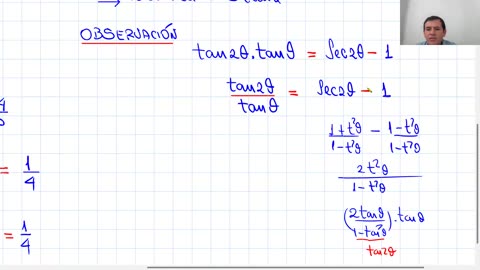 OBSERVACIÓN
tan2θ.tanθ = Sec2θ - 1
tan2θ/tanθ = Sec2θ - 1
(1+t²θ)/(1-t²θ) - (1-t²θ)/(1-t²θ)
2t²θ/(1-t²θ)
= 1/4
(2tanθ/(1-tan²θ)).tanθ
tan2θ
= 1/4